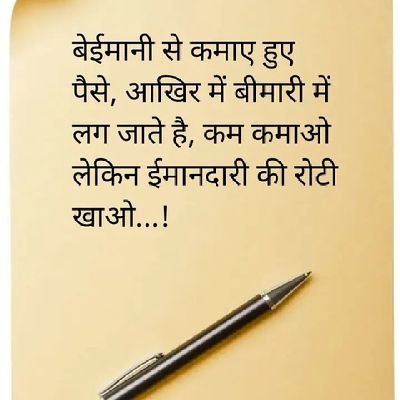 बेईमानी से कमाए हुए
पैसे, आखिर में बीमारी में
लग जाते है, कम कमाओ
लेकिन ईमानदारी की रोटी
खाओ...!